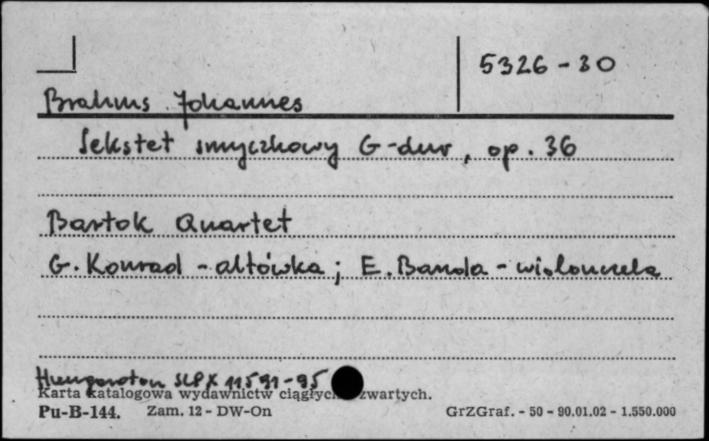 5326-30
Brahms Johannes
Sekstet smyczkowy G-dur, op. 36
Bartok Quartet
G. Konrad - altówka; E. Banda - wiolonczela
Hungaroton SLPX 11591-95
Karta katalogowa wydawnictw ciągłych zwartych.
Pu-B-144. Zam. 12 - DW-On GrZGraf. - 50 - 90.01.02 - 1.550.000